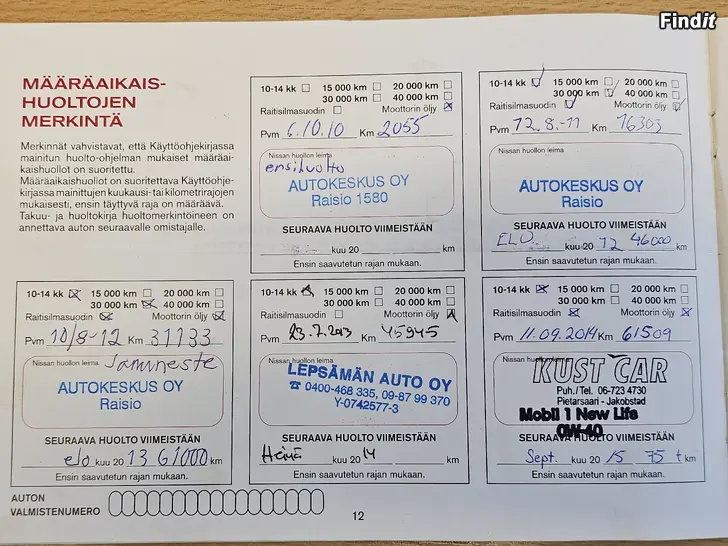 Findit
MÄÄRÄAIKAIS-
HUOLTOJEN
MERKINTÄ
Merkinnät vahvistavat, että Käyttöohjekirjassa
mainitun huolto-ohjelman mukaiset määräai-
kaishuollot on suoritettu.
Määräaikaishuollot on suoritettava Käyttöohje-
kirjassa mainittujen kuukausi- tai kilometrirajojen
mukaisesti, ensin täyttyvä raja on määräävä.
Takuu- ja huoltokirja huoltomerkintöineen on
annettava auton seuraavalle omistajalle.
10-14 kk 15 000 km 20 000 km
30 000 km 40 000 km
Raitisilmasuodin Moottorin öljy
Pvm 6.10.10 Km 2055
Nissan huollon leima
ensihuolto
AUTOKESKUS OY
Raisio 1580
SEURAAVA HUOLTO VIIMEISTÄÄN
kuu 20 km
Ensin saavutetun rajan mukaan.
10-14 kk 15 000 km 20 000 km
30 000 km 40 000 km
Raitisilmasuodin Moottorin öljy
Pvm 12.8.-11 Km 16303
Nissan huollon leima
AUTOKESKUS OY
Raisio
SEURAAVA HUOLTO VIIMEISTÄÄN
ELO kuu 20 12 46000 km
Ensin saavutetun rajan mukaan.
10-14 kk 15 000 km 20 000 km
30 000 km 40 000 km
Raitisilmasuodin Moottorin öljy
Pvm 10/8-12 Km 31133
Nissan huollon leima
AUTOKESKUS OY
Raisio
SEURAAVA HUOLTO VIIMEISTÄÄN
elo kuu 20 13 61000 km
Ensin saavutetun rajan mukaan.
10-14 kk 15 000 km 20 000 km
30 000 km 40 000 km
Raitisilmasuodin Moottorin öljy
Pvm 23.7.2013 Km 45945
Nissan huollon leima
LEPSÄMÄN AUTO OY
☎ 0400-468 335, 09-87 99 370
Y-0742577-3
SEURAAVA HUOLTO VIIMEISTÄÄN
Heinä kuu 20 14 km
Ensin saavutetun rajan mukaan.
10-14 kk 15 000 km 20 000 km
30 000 km 40 000 km
Raitisilmasuodin Moottorin öljy
Pvm 11.09.2014 Km 61509
Nissan huollon leima
KUST CAR
Puh./Tel. 06-723 4730
Pietarsaari - Jakobstad
Mobil 1 New Life
0W-40
SEURAAVA HUOLTO VIIMEISTÄÄN
Sept. kuu 20 15 75 t km
Ensin saavutetun rajan mukaan.
AUTON
VALMISTENUMERO
12